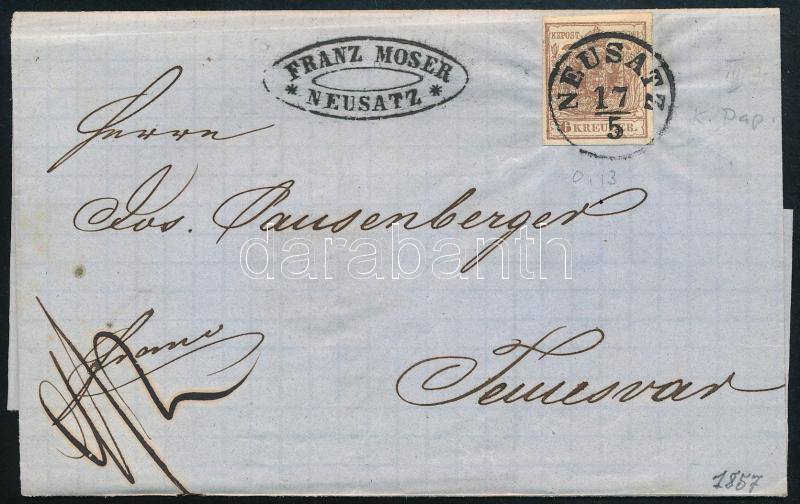 FRANZ MOSER
* NEUSATZ *
KKPOST-STEMPEL
6 KREUZER.
NEUSATZ
17
5
III
K. Pap.
0,13
Herrn
Jos. Pausenberger
darabanth
franco
Temesvar
1857